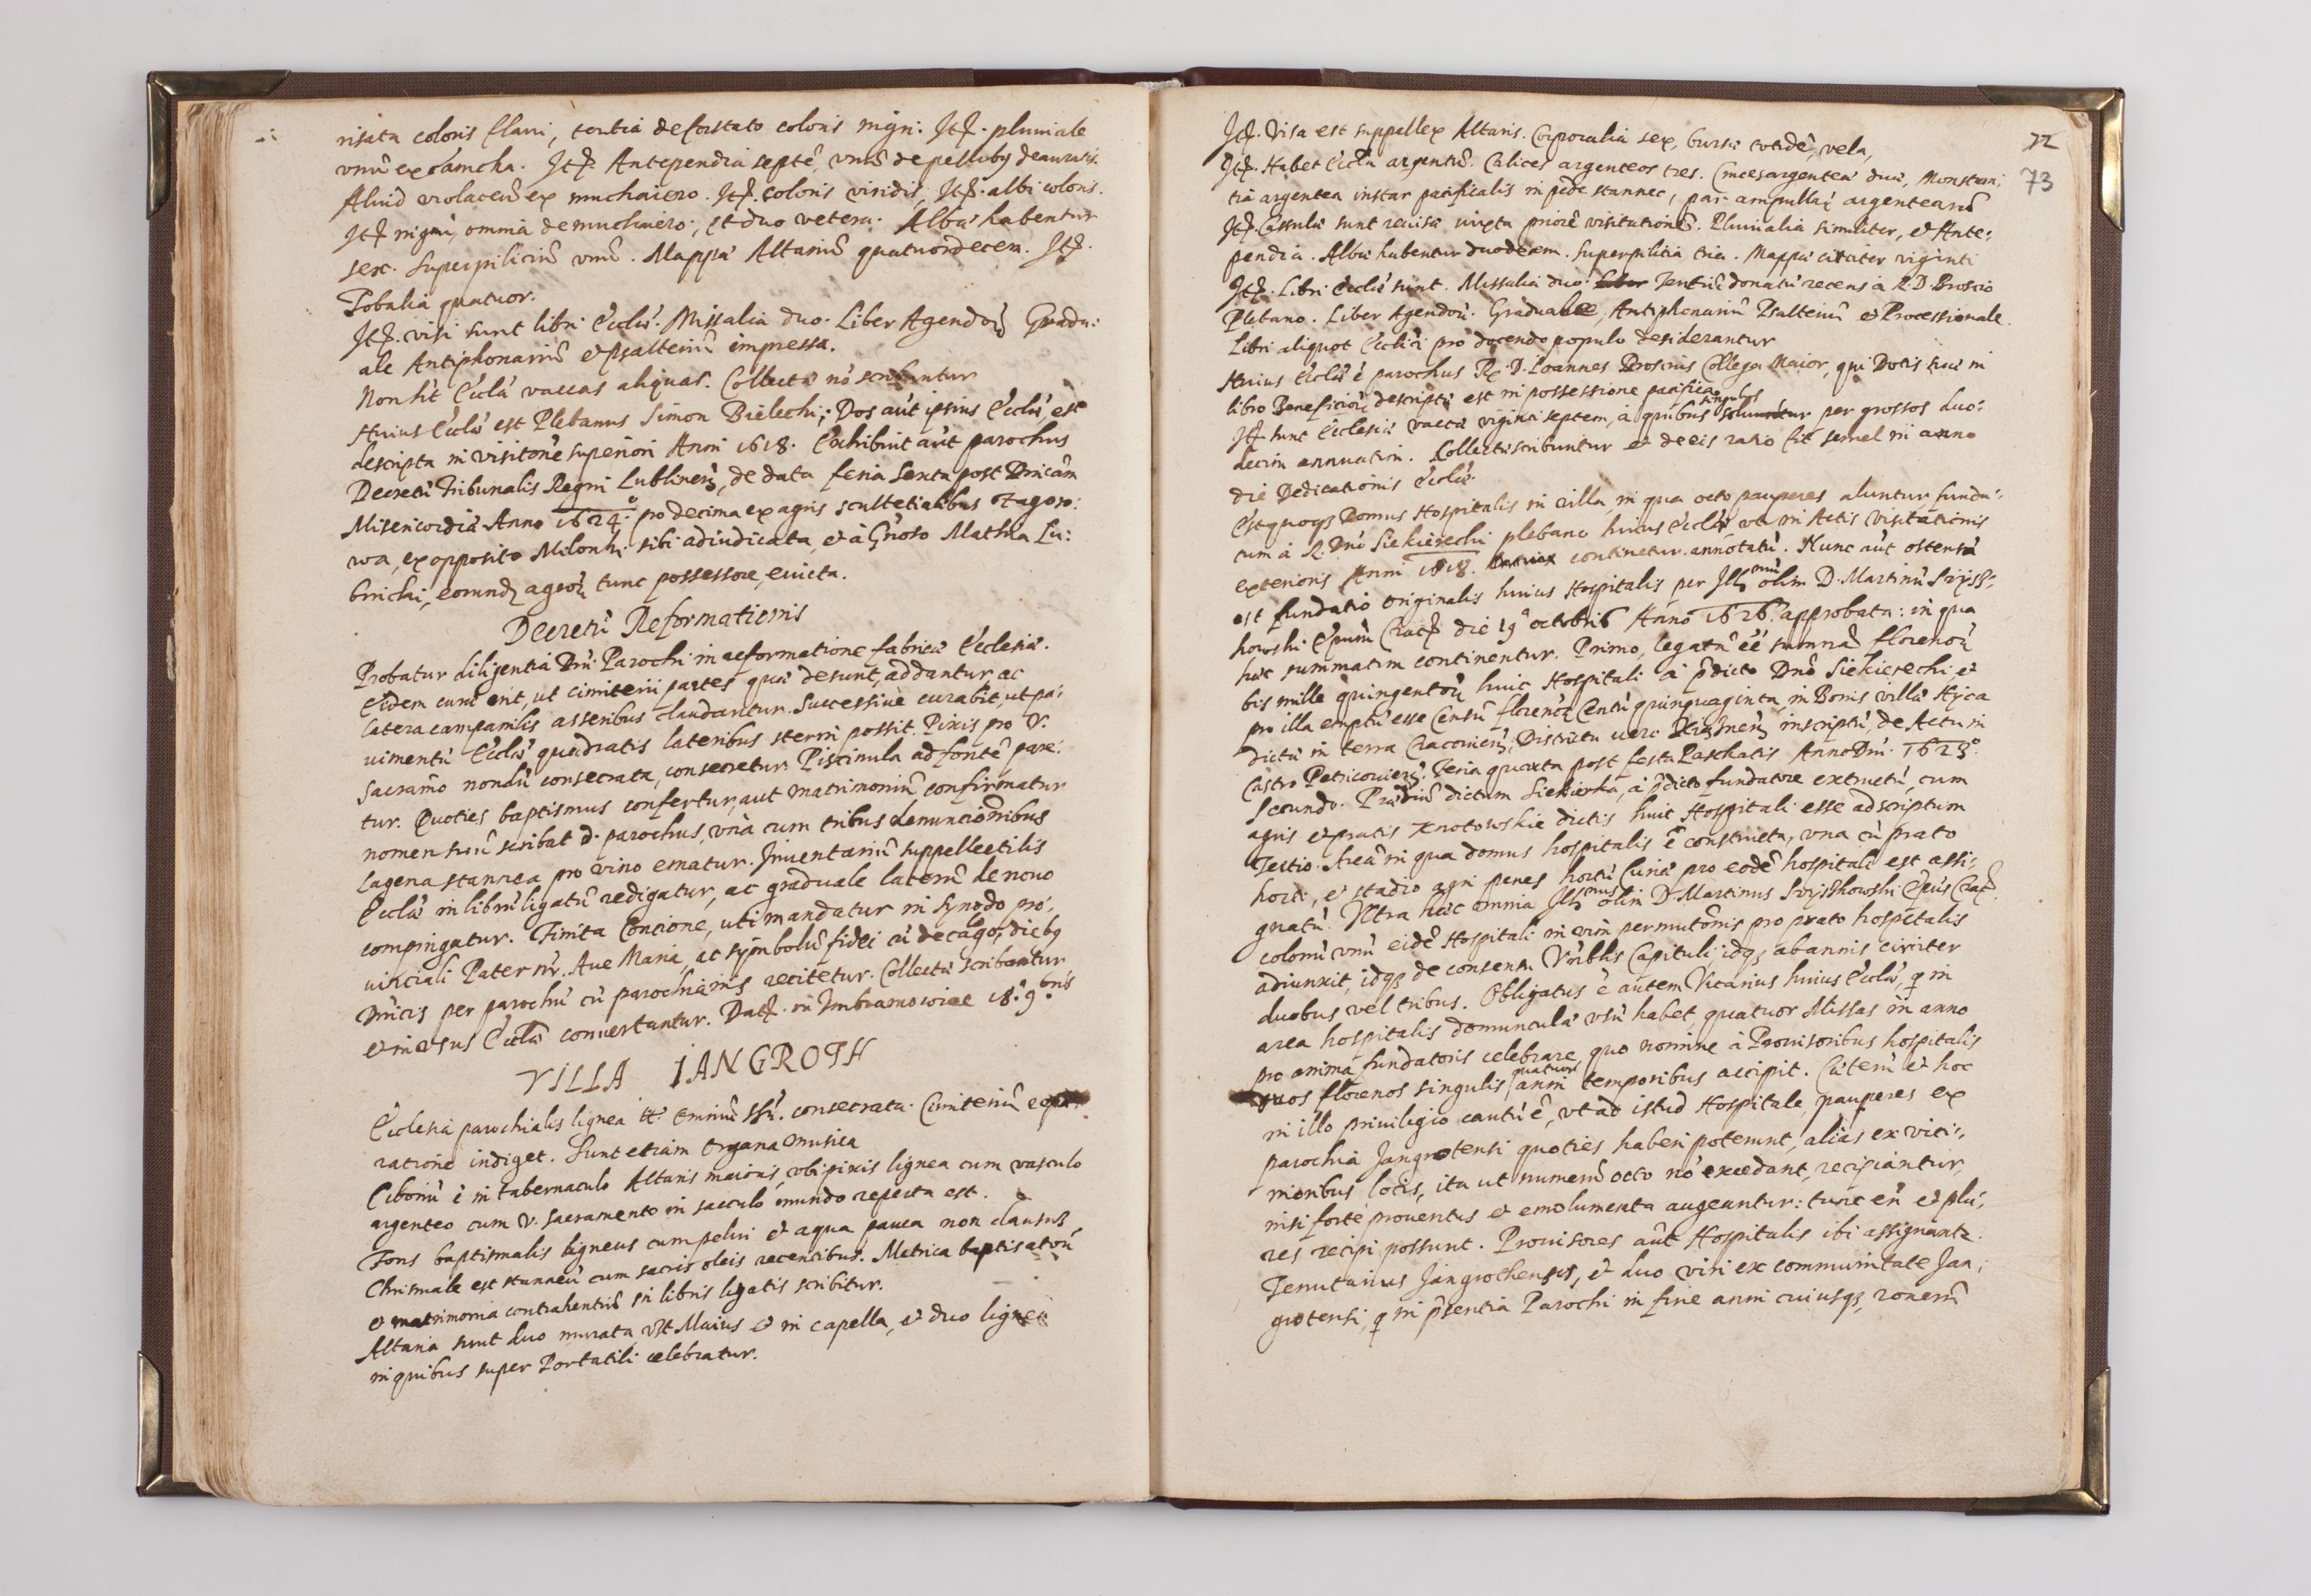 risata coloris flavi, tertia de forstato coloris nigri. Itē. pluviale
unū ex čamcha. Itē. Antependia septē, unū de pellibꝫ deauratis.
Aliud violaceū ex muchaiero. Itē. coloris viridis, Itē. albi coloris.
Itē nigri, omnia de muchaiero, et duo vetera. Albæ habentur
sex. Superpiliciū unū. Mappæ Altariū quatuordecem. Itē.
Tobalia quatuor.
Itē. visi sunt libri Ecclæ. Missalia duo. Liber Agendoꝝ Gradu:
ale Antiphonariū et psalteriū impressa.
Non hēt Eccla vaccas aliquas. Collectæ nō scribuntur
Huius Ecclæ est Plebanus Simon Bielechi; Dos aūt ipsius Ecclæ est
descripta in visitone superiori Anni 1618. Exhibuit aūt parochus
Decretū Tribunalis Regni Lublineñ, de data feria Sexta post Dñicam
Misericordiæ Anno 1624º pro decima ex agris scultetialibus Zagoro:
wa, ex opposito Milonki sibi adiudicata, et à Gñoso Mathia Lu:
bnichi, eorundꝫ agroꝝ tunc possessore, evicta.
Decretū Reformationis
Probatur diligentia Dñi Parochi in reformatione fabricæ Ecclesiæ.
Eidem curæ erit, ut cimiterii partes quæ desunt, addantur, ac
latera campanilis asseribus claudantur. Successive curabit, ut pa:
vimentū Ecclæ quadratis lateribus sterni possit. Pixis pro V.
Sacramo nondū consecrata, consecretur. Piscinula ad fontē pare:
tur. Quoties baptismus confertur, aut matrimoniū confirmatur
nomen suū scribat d. parochus, unà cum tribus denunciõnibus
Lagena stannea pro vino ematur. Inventariū suppellectilis
Ecclæ in librū ligatū redigatur, ac graduale laterū de novo
compingatur. Finita Concione, uti mandatur in Synodo pro:
vinciali Pater nr. Ave Maria, ac symbolū fidei cū decalogo, diebꝫ
Dñicis per parochū cū parochianis recitetur. Collectæ scribantur
et in usus Ecclæ convertantur. Datꝫ. in Imbramowice 18. 9bris.
VILLA IANGROTH
Ecclesia parochialis lignea consecrata. Cimiteriū repa:
ratione indiget. Sunt etiam Organa musica
Ciboriū ē in tabernaculo Altaris maioris, ubi pixis lignea cum vasculo
argenteo cum V. Sacramento in sacculo mundo reperta est.
Fons baptismalis ligneus cum pelvi et aqua pauca non clausus,
Chrismale est stanneū cum sacris oleis recentibus. Metrica baptisatoꝝ
et matrimonia contrahentiū in libris ligatis scribitur.
Altaria sunt duo murata, ut Maius et in capella, et duo lignea
in quibus super Portatili celebratur.
72
73
Itē. Visa est suppellex Altaris. Corporalia sex, bursæ totidē, vela,
Itē. Habet Eccla argentū. Calices argenteos tres. Cruces argenteæ duæ, Monstran:
tia argentea instar pacificalis in pede stanneo, par ampullaꝝ argentearū
Itē. Casulæ sunt revisæ iuxta priorē visitationē. Pluvialia similiter, et Ante:
pendia. Albæ habentur duodecem. Superpilitia tria. Mappæ citciter viginti
Itē. Libri Ecclæ sunt. Missalia duo. Tertiū donatū recens à R. D. Broscio
Plebano. Liber Agendoꝝ. Graduale, Antiphonariū Psalteriū et Processionale.
Libri aliquot Ecclici pro docendo populo desiderantur
Huius Ecclæ ē parochus R. D. Ioannes Broscius Collega Maior, qui Dotis suæ in
libro Beneficioꝝ descriptæ est in possessione pacifica
Itē sunt Ecclesiæ vaccæ viginti septem, à quibus singulos solvuntur per grossos duo:
decim annuatim. Collectæ scribuntur et de eis ratio fit semel in anno
die Dedicationis Ecclæ.
Est quoqꝫ Domus Hospitalis in villa, in qua octo pauperes aluntur, funda:
tum à R. Dno Siekierechi plebano huius Ecclæ, ut in Actis Visitationis
exterioris Anni 1618. continetur annotatū. Nunc aūt ostensa
est fundatio originalis huius Hospitalis per Illmū olim D. Martinū Szysz:
kowski Epum Cracꝫ die 19 octobris Anno 1626 approbata: in qua
hæc summatim continentur. Primo, legatū eē summā florenoꝝ
bis mille quingentoꝝ huic Hospitali à p̄dicto Dno Siekierechi et
pro illa emptū esse Censū florenoꝝ Centū quinquaginta, in Bonis villæ Hyca
dictæ in terra Cracovieñ, Districtu vero Xiąsneñ inscriptū, de Actu in
Castro Petricovieñ. Feria quarta post festa Paschatis Anno Dñi 1623º.
Secundo. Prædiū dictum Siekierka, à p̄dicto fundatore extructū, cum
agris et pratis Knotowskie dictis huic Hospitali esse adscriptum
Tertio. Areā in qua domus hospitalis ē constructa, una cū prato
horti, et stadio agri penes hortū Curiæ pro eodē hospitali est assi:
gnatū. Ultra hæc omnia Illmus olim D. Martinus Szyszkowski Epus Cracꝫ.
colonū unū eidē Hospitali in vim permutonis pro prato hospitalis
adiunxit, idqꝫ de consensu Vnblis Capituli, idqꝫ ab annis circiter
duobus vel tribus. Obligatus ē autem Vicarius huius Ecclæ, q̄ in
area hospitalis domunculæ usū habet, quatuor Missas in anno
pro anima fundatoris celebrare, quo nomine à Provisoribus hospitalis
duos florenos singulis quatuor anni temporibus accipit. Cæterū et hoc
in illo privilegio cautū ē, ut ad istud Hospitale, pauperes ex
parochia Jangrotensi quoties haberi poterunt, alias ex vici:
nioribus locis, ita ut numerū octo nō excedant, recipiantur,
nisi forte proventus et emolumenta augeantur: tunc eñ et plu:
res recipi possunt. Provisores aūt Hospitalis ibi assignantr.
Tenutarius Jangrothensis, et duo viri ex communitate Jan:
grotensi, q̄ in p̄sentia Parochi in fine anni cuiusqꝫ, ronem